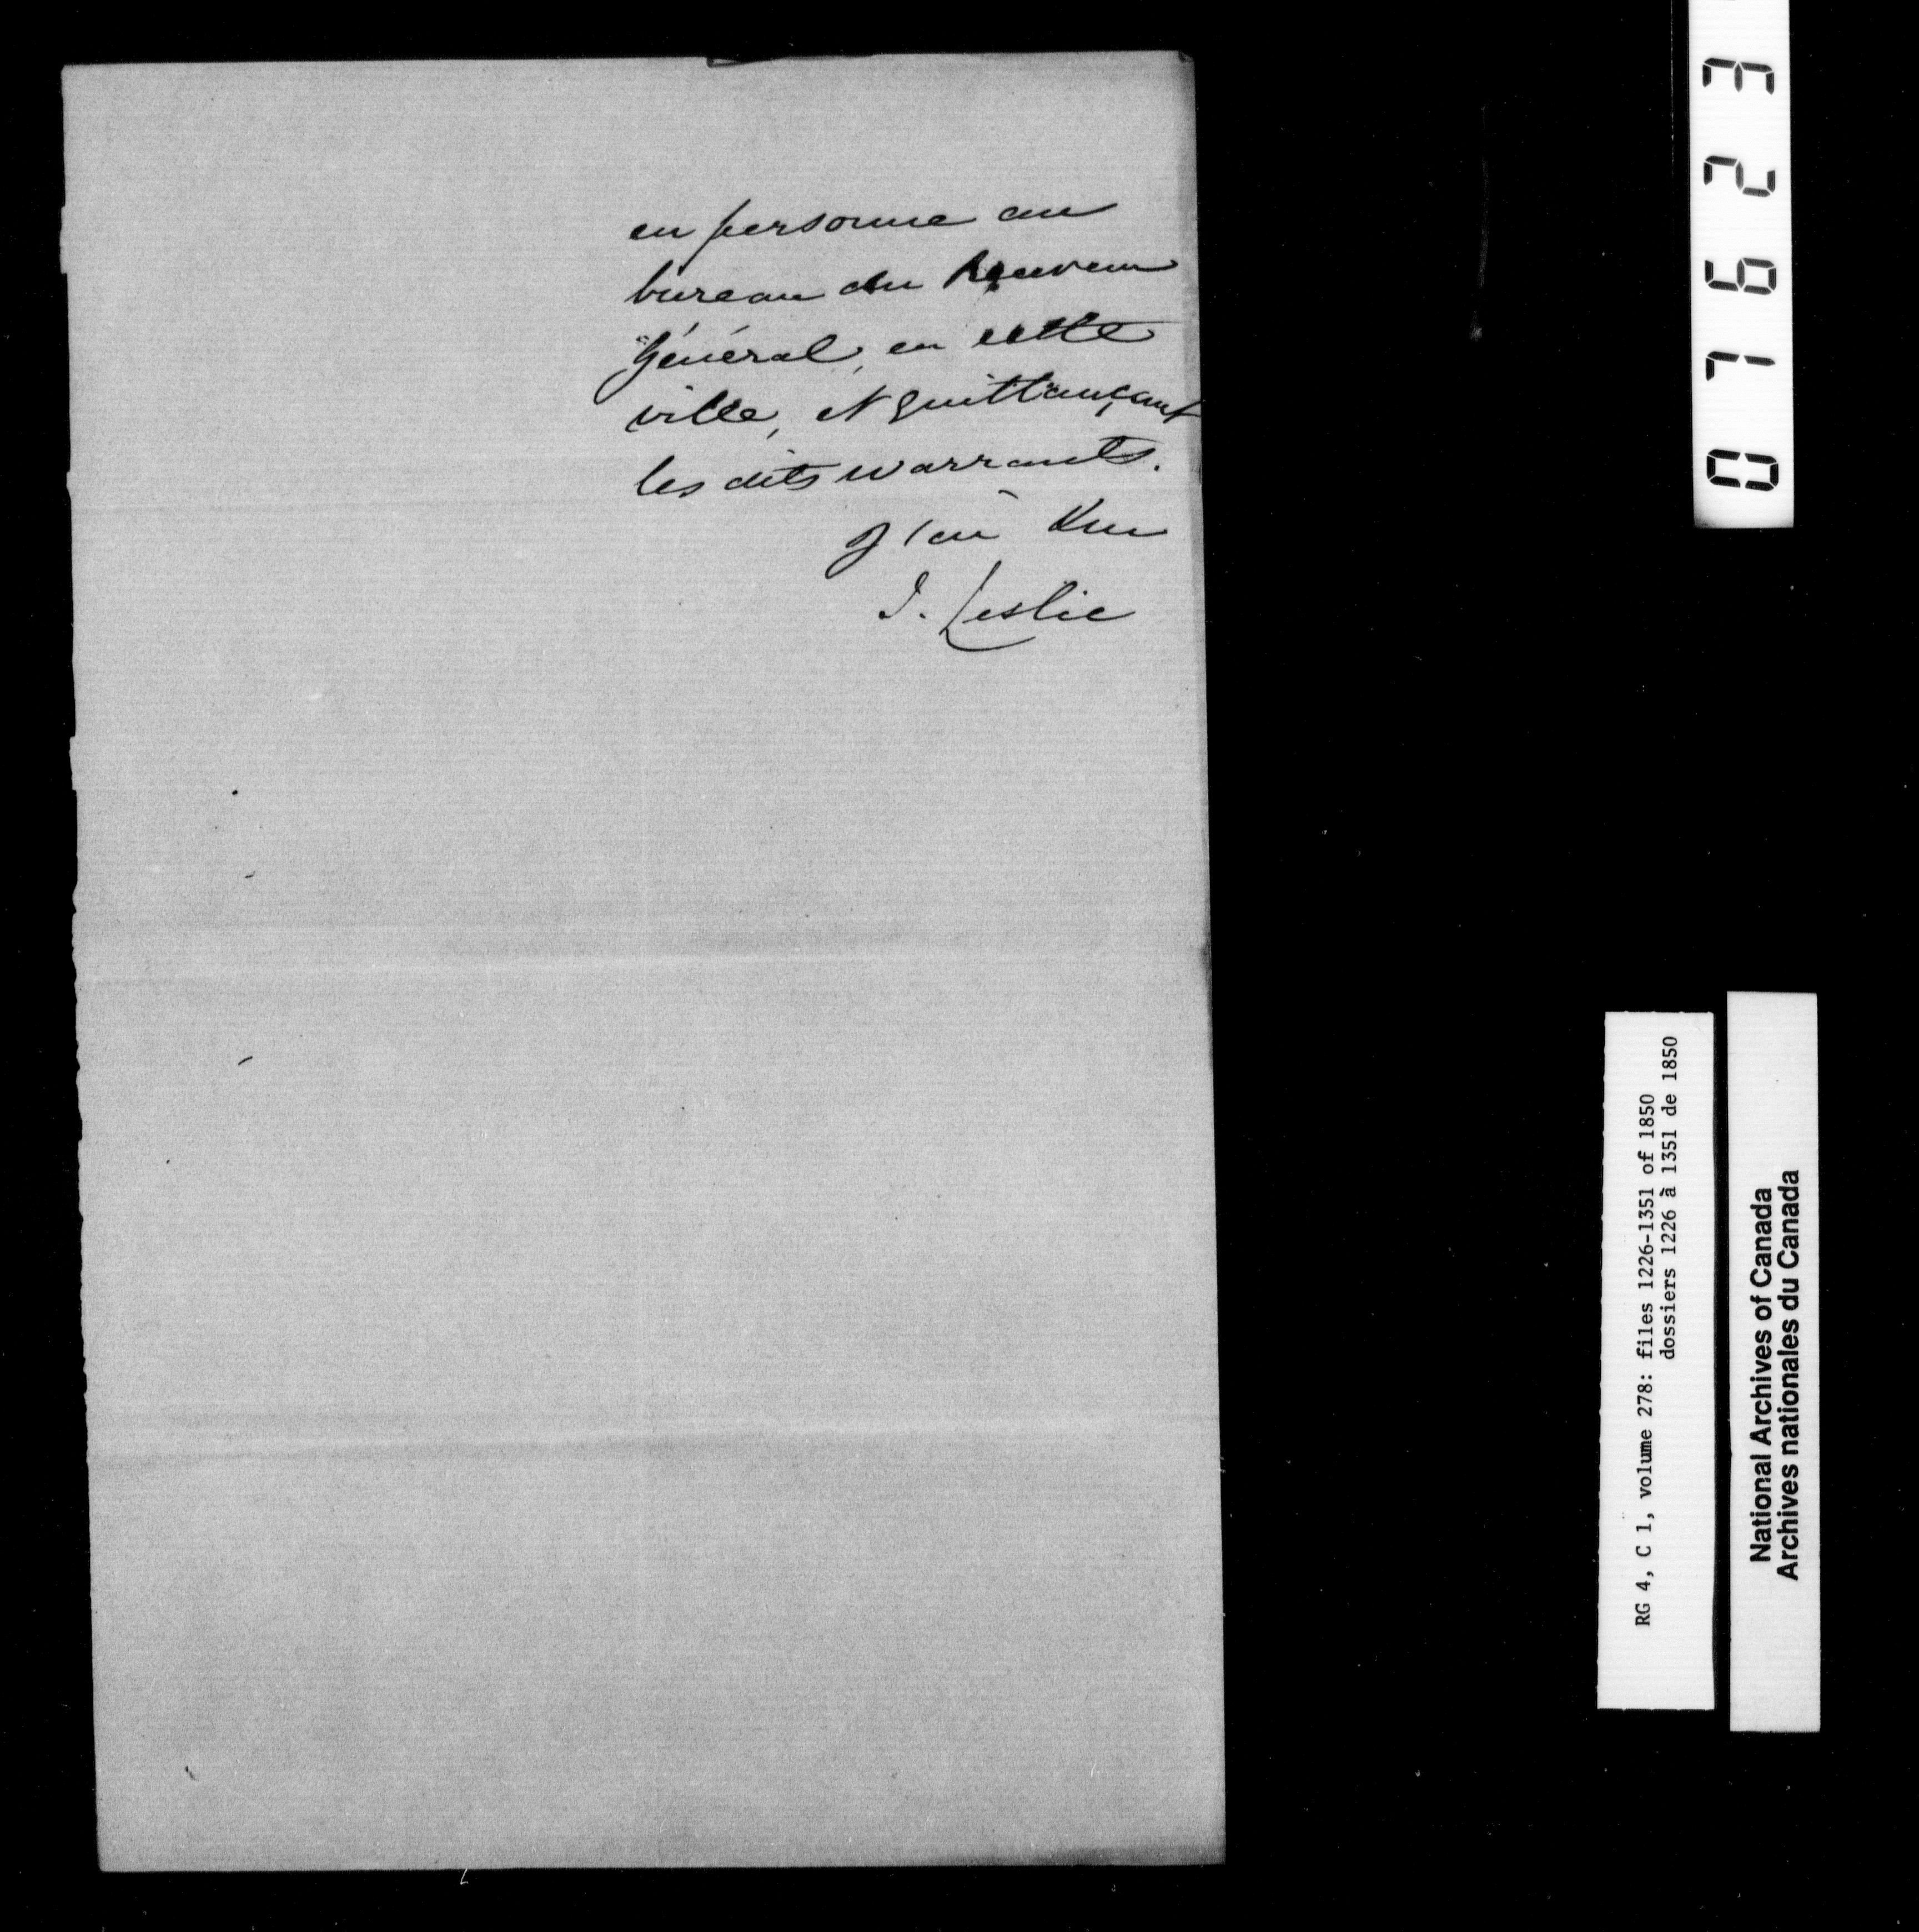 en personne au
bureau du Receveur
Général, en cette
ville, et quittançant
les dits warrants.
J'ai
J. Leslie
07623
RG 4, C 1, volume 278: files 1226-1351 of 1850
dossiers 1226 à 1351 de 1850
National Archives of Canada
Archives nationales du Canada